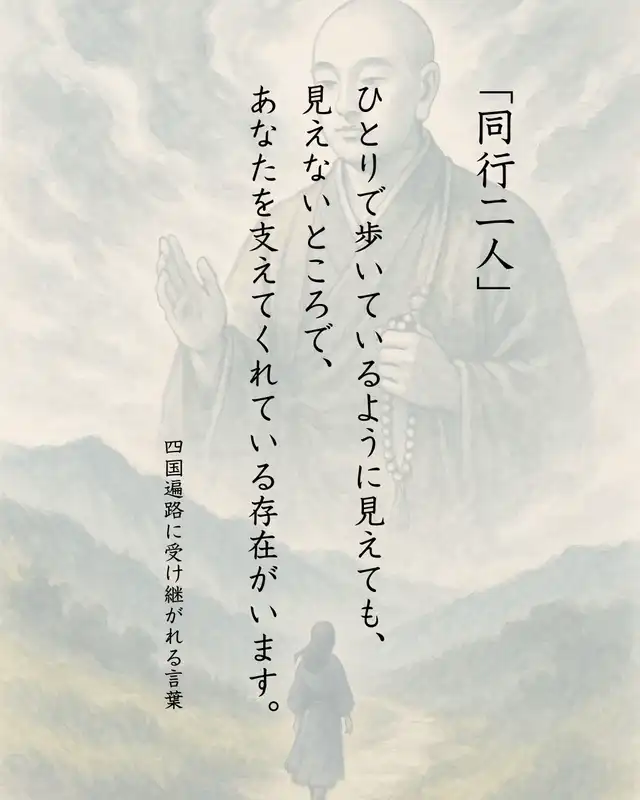 「同行二人」
ひとりで歩いているように見えても、
見えないところで、
あなたを支えてくれている存在がいます。
四国遍路に受け継がれる言葉